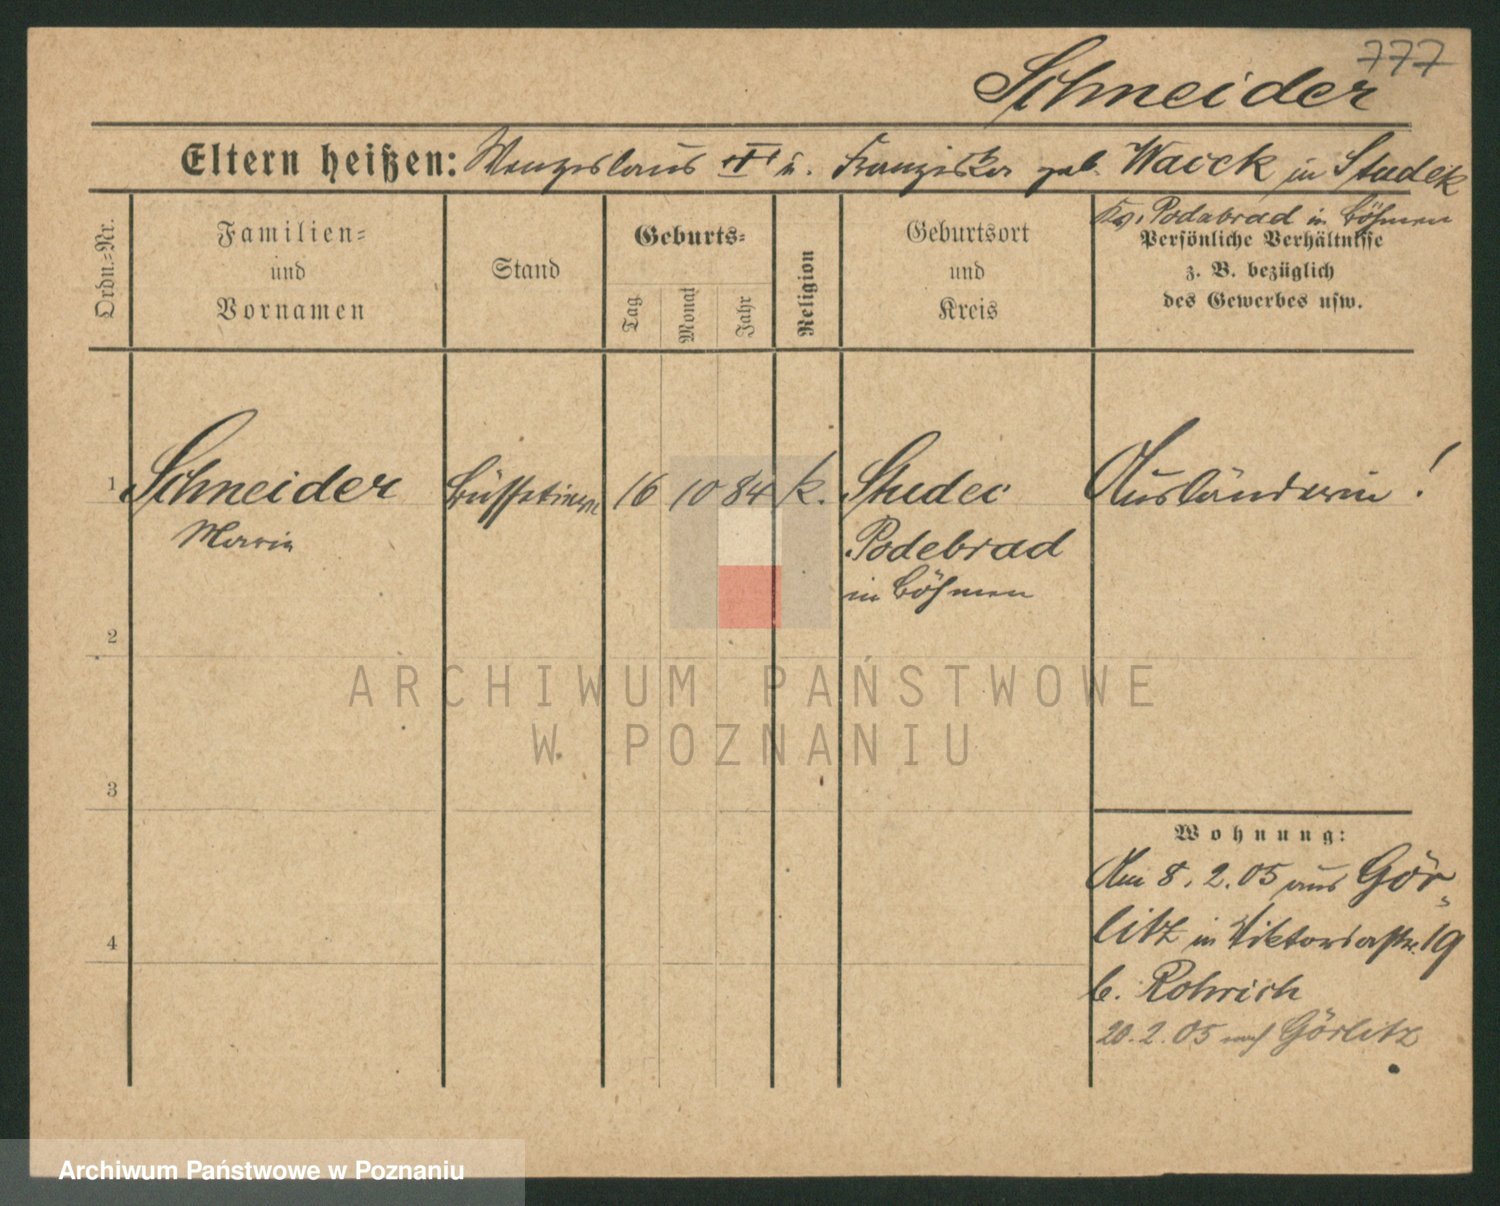 777
Schneider
Eltern heißen: Wenzeslaus u. Franziska geb. Waick in Studek
Kr. Podabrad in Böhmen
Ordn.-Nr.
Familien-
und
Vornamen
Stand
Geburts-
Tag
Monat
Jahr
Religion
Geburtsort
und
Kreis
Persönliche Verhältnisse
z. B. bezüglich
des Gewerbes usw.
1 Schneider Büffetiere 16 10 84 k. Studec Ausländerin!
Maria Podebrad
in Böhmen
2
ARCHIWUM PAŃSTWOWE
W POZNANIU
3
Wohnung:
Am 8.2.05 aus Gör-
litz in Viktoriastr. 19
4
b. Rohrich
20.2.05 nach Görlitz
Archiwum Państwowe w Poznaniu